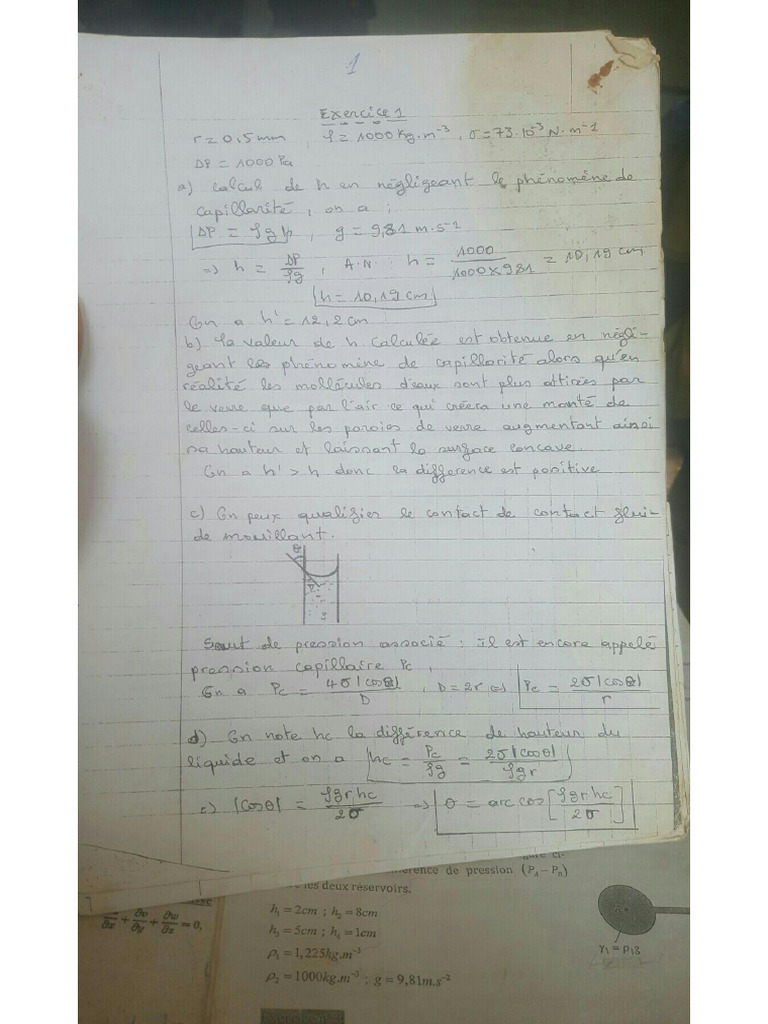 1
Exercice 1
r = 0.5mm , ρ = 1000 Kg.m⁻³ , σ = 73.10⁻³ N.m⁻¹
ΔP = 1000 Pa
a) Calcul de h en négligeant le phénomène de
capillarité, on a :
ΔP = ρgh , g = 9,81 m.s⁻¹
=> h = ΔP/ρg , A.N : h = 1000/1000×9.81 = 10,19 cm
h = 10,19 cm
On a h' = 12,2 cm
b) La valeur de h calculée est obtenue en négli-
geant les phénomène de capillarité alors qu'en
réalité les mollécules d'eaux sont plus attirées par
le verre que par l'air ce qui créera une monté de
celles-ci sur les paroies de verre augmentant ainsi
sa hauteur et laissant la surface concave.
On a h' > h donc la difference est positive
c) On peux qualifier le contact de contact flui-
de mouillant.
θ
Saut de pression associé : il est encore appelé
pression capillaire Pc,
On a Pc = 4σ|cosθ|/D , D = 2r => Pc = 2σ|cosθ|/r
d) On note hc la différence de hauteur du
liquide et on a hc = Pc/ρg = 2σ|cosθ|/ρgr
e) |cosθ| = ρgrhc/2σ => θ = arccos[ρgrhc/2σ]
érence de pression (P_A − P_B)
les deux réservoirs.
h₁ = 2cm ; h₂ = 8cm
h₃ = 5cm ; h₄ = 1cm
ρ₁ = 1,225kg.m⁻³
ρ₂ = 1000kg.m⁻³ ; g = 9,81m.s⁻²
/∂x + ∂v/∂y + ∂w/∂z = 0,
γ₁ = ρ₁g